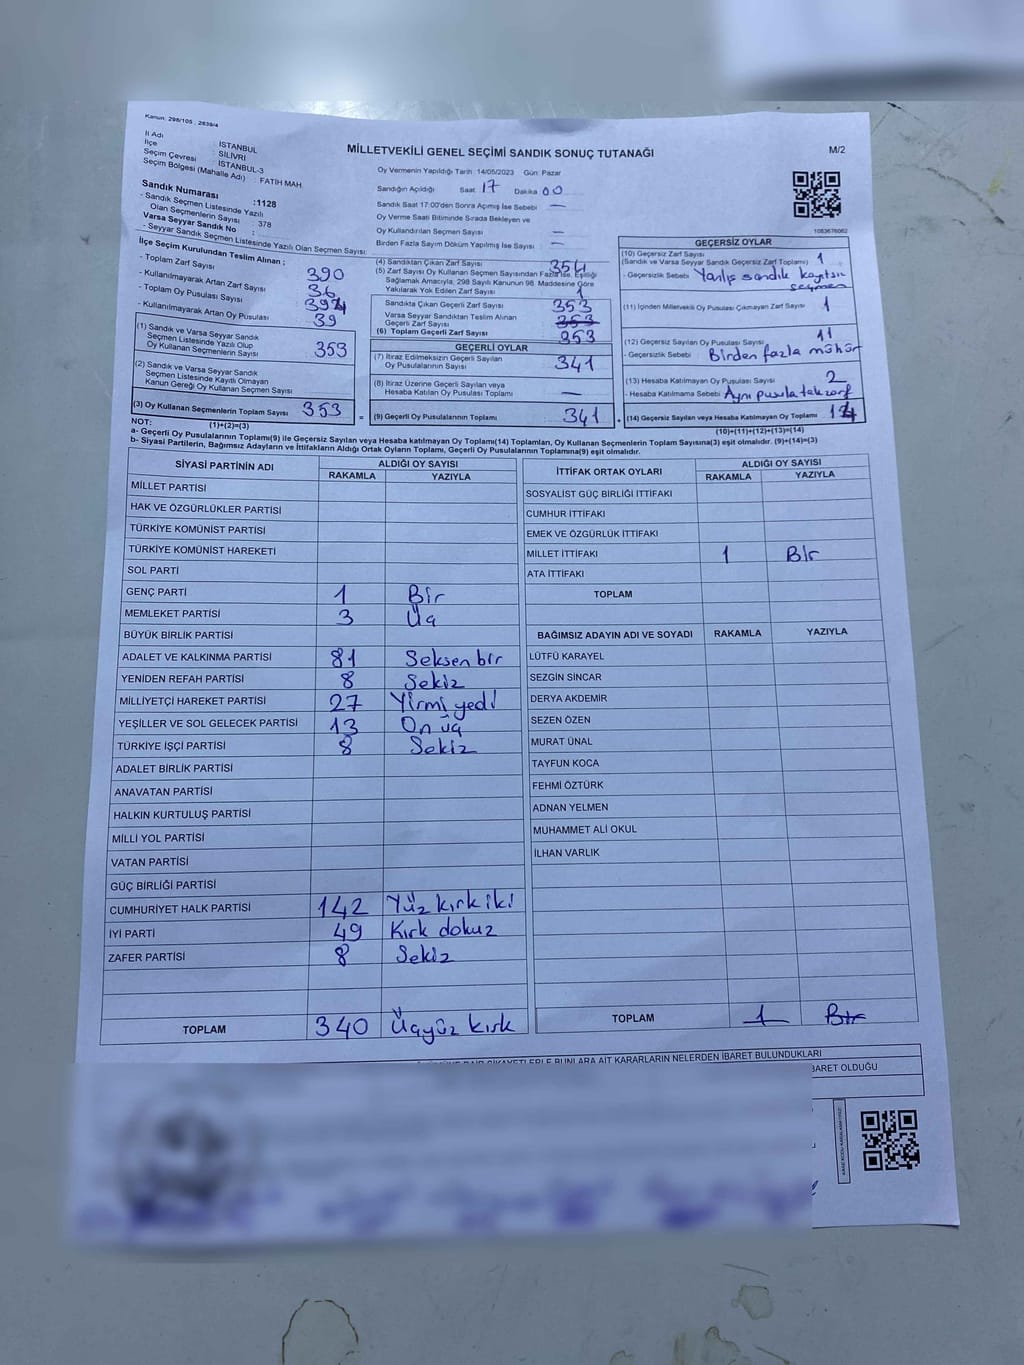 Kanun: 298/105 , 2839/4
İl Adı : İSTANBUL
İlçe : SİLİVRİ
Seçim Çevresi : İSTANBUL-3
Seçim Bölgesi (Mahalle Adı) : FATİH MAH.
Sandık Numarası :1128
- Sandık Seçmen Listesinde Yazılı
Olan Seçmenlerin Sayısı : 378
Varsa Seyyar Sandık No :
- Seyyar Sandık Seçmen Listesinde Yazılı Olan Seçmen Sayısı:
MİLLETVEKİLİ GENEL SEÇİMİ SANDIK SONUÇ TUTANAĞI
M/2
Oy Vermenin Yapıldığı Tarih :14/05/2023 Gün: Pazar
Sandığın Açıldığı Saat: 17 Dakika: 00
Sandık Saat 17:00'den Sonra Açılmış İse Sebebi : —
Oy Verme Saati Bitiminde Sırada Bekleyen ve
Oy Kullandırılan Seçmen Sayısı : —
Birden Fazla Sayım Döküm Yapılmış İse Sayısı : —
1083678062
İlçe Seçim Kurulundan Teslim Alınan ;
- Toplam Zarf Sayısı : 390
- Kullanılmayarak Artan Zarf Sayısı : 36
- Toplam Oy Pusulası Sayısı
- Kullanılmayarak Artan Oy Pusulası : 39
(1) Sandık ve Varsa Seyyar Sandık
Seçmen Listesinde Yazılı Olup
Oy Kullanan Seçmenlerin Sayısı 353
(2) Sandık ve Varsa Seyyar Sandık
Seçmen Listesinde Kayıtlı Olmayan
Kanun Gereği Oy Kullanan Seçmen Sayısı
(3) Oy Kullanan Seçmenlerin Toplam Sayısı 353
(1)+(2)=(3)
(4) Sandıktan Çıkan Zarf Sayısı 354
(5) Zarf Sayısı Oy Kullanan Seçmen Sayısından Fazla ise, Eşitliği
Sağlamak Amacıyla, 298 Sayılı Kanunun 98. Maddesine Göre
Yakılarak Yok Edilen Zarf Sayısı 1
Sandıkta Çıkan Geçerli Zarf Sayısı 353
Varsa Seyyar Sandıktan Teslim Alınan
Geçerli Zarf Sayısı 353
(6) Toplam Geçerli Zarf Sayısı 353
GEÇERLİ OYLAR
(7) İtiraz Edilmeksizin Geçerli Sayılan
Oy Pusulalarının Sayısı 341
(8) İtiraz Üzerine Geçerli Sayılan veya
Hesaba Katılan Oy Pusulası Toplamı —
= (9) Geçerli Oy Pusulalarının Toplamı 341
GEÇERSİZ OYLAR
(10) Geçersiz Zarf Sayısı
(Sandık ve Varsa Seyyar Sandık Geçersiz Zarf Toplamı) 1
- Geçersizlik Sebebi : Yanlış sandık kayıtsız
seçmen
(11) İçinden Milletvekili Oy Pusulası Çıkmayan Zarf Sayısı 1
(12) Geçersiz Sayılan Oy Pusulası Sayısı 11
- Geçersizlik Sebebi : Birden fazla mühür
(13) Hesaba Katılmayan Oy Pusulası Sayısı 2
- Hesaba Katılmama Sebebi : Aynı pusula tek zarf
+ (14) Geçersiz Sayılan veya Hesaba Katılmayan Oy Toplamı
(10)+(11)+(12)+(13)=(14)
NOT:
a- Geçerli Oy Pusulalarının Toplamı(9) ile Geçersiz Sayılan veya Hesaba katılmayan Oy Toplamı(14) Toplamları, Oy Kullanan Seçmenlerin Toplam Sayısına(3) eşit olmalıdır. (9)+(14)=(3)
b- Siyasi Partilerin, Bağımsız Adayların ve İttifakların Aldığı Ortak Oyların Toplamı, Geçerli Oy Pusulalarının Toplamına(9) eşit olmalıdır.
SİYASİ PARTİNİN ADI ALDIĞI OY SAYISI
RAKAMLA YAZIYLA
MİLLET PARTİSİ
HAK VE ÖZGÜRLÜKLER PARTİSİ
TÜRKİYE KOMÜNİST PARTİSİ
TÜRKİYE KOMÜNİST HAREKETİ
SOL PARTİ
GENÇ PARTİ 1 Bir
MEMLEKET PARTİSİ 3 Üç
BÜYÜK BİRLİK PARTİSİ
ADALET VE KALKINMA PARTİSİ 81 Seksen bir
YENİDEN REFAH PARTİSİ 8 Sekiz
MİLLİYETÇİ HAREKET PARTİSİ 27 Yirmi yedi
YEŞİLLER VE SOL GELECEK PARTİSİ 13 On üç
TÜRKİYE İŞÇİ PARTİSİ 8 Sekiz
ADALET BİRLİK PARTİSİ
ANAVATAN PARTİSİ
HALKIN KURTULUŞ PARTİSİ
MİLLİ YOL PARTİSİ
VATAN PARTİSİ
GÜÇ BİRLİĞİ PARTİSİ
CUMHURİYET HALK PARTİSİ 142 Yüz kırk iki
İYİ PARTİ 49 Kırk dokuz
ZAFER PARTİSİ 8 Sekiz
TOPLAM 340 Üçyüz kırk
İTTİFAK ORTAK OYLARI ALDIĞI OY SAYISI
RAKAMLA YAZIYLA
SOSYALİST GÜÇ BİRLİĞİ İTTİFAKI
CUMHUR İTTİFAKI
EMEK VE ÖZGÜRLÜK İTTİFAKI
MİLLET İTTİFAKI 1 Bir
ATA İTTİFAKI
TOPLAM
BAĞIMSIZ ADAYIN ADI VE SOYADI RAKAMLA YAZIYLA
LÜTFÜ KARAYEL
SEZGİN SİNCAR
DERYA AKDEMİR
SEZEN ÖZEN
MURAT ÜNAL
TAYFUN KOCA
FEHMİ ÖZTÜRK
ADNAN YELMEN
MUHAMMET ALİ OKUL
İLHAN VARLIK
TOPLAM 1 Bir
ŞİKAYETLERLE BUNLARA AİT KARARLARIN NELERDEN İBARET BULUNDUKLARI
BARET OLDUĞU